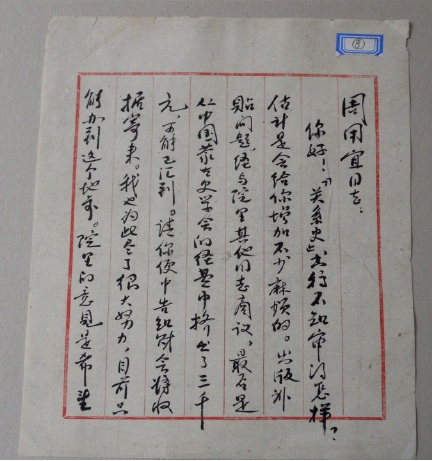 ⑧
周用宜同志：
你好！《关系史》发行不知审订怎样？
估计是会给你增加不少麻烦的。出版补
贴问题，经与院里其他同志商议，最后是
从中国蒙古史学会的经费中挤出了三千
元，可能已汇到。请你便中告知财会将收
据寄来。我也为此尽了很大努力，目前只
能办到这个地步。院里的意见是希望